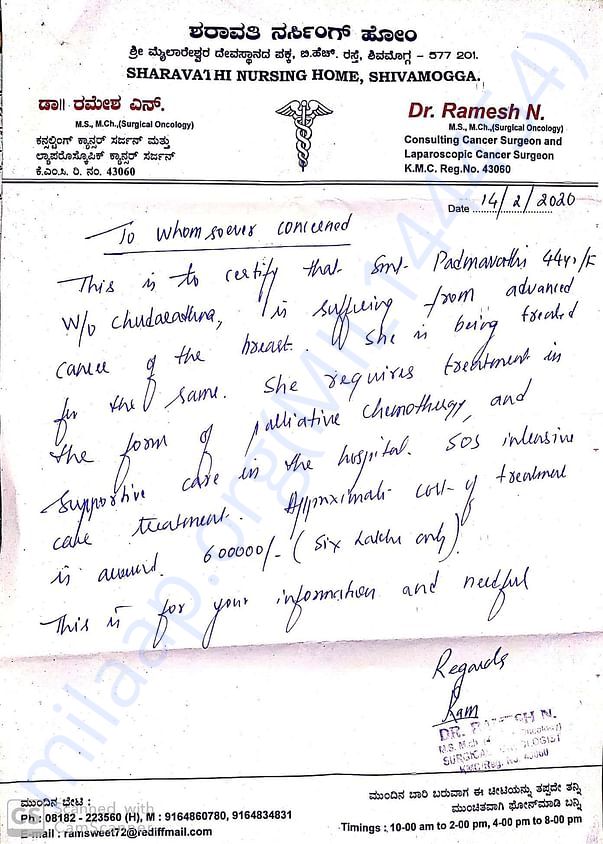 ಶರಾವತಿ ನರ್ಸಿಂಗ್ ಹೋಂ
ಶ್ರೀ ಮೈಲಾರೇಶ್ವರ ದೇವಸ್ಥಾನದ ಪಕ್ಕ, ಬಿ.ಹೆಚ್. ರಸ್ತೆ, ಶಿವಮೊಗ್ಗ - 577 201.
SHARAVATHI NURSING HOME, SHIVAMOGGA.
ಡಾ|| ರಮೇಶ ಎನ್.
M.S., M.Ch.,(Surgical Oncology)
ಕನ್ಸಲ್ಟಿಂಗ್ ಕ್ಯಾನ್ಸರ್ ಸರ್ಜನ್ ಮತ್ತು
ಲ್ಯಾಪರೊಸ್ಕೋಪಿಕ್ ಕ್ಯಾನ್ಸರ್ ಸರ್ಜನ್
ಕೆ.ಎಂ.ಸಿ. ರಿ. ನಂ. 43060
Dr. Ramesh N.
M.S., M.Ch.,(Surgical Oncology)
Consulting Cancer Surgeon and
Laparoscopic Cancer Surgeon
K.M.C. Reg.No. 43060
Date 14/2/2020
To whomsoever concerned
This is to certify that Smt. Padmavathi 44yr/F
W/o is suffering from advanced
cancer of the breast. She is being treated
for the same. She requires treatment in
the form of palliative chemotherapy, and
supportive care in the hospital. SOS intensive
care treatment. Approximate cost of treatment
is around. 600000/- (six lakhs only).
This is for your information and needful
Regards
Ram
DR. RAMESH N.
M.S. M.Ch
SURGICAL ONCOLOGIST
KMC Reg. No. 43060
ಮುಂದಿನ ಬೇಟಿ :
Ph : 08182 - 223560 (H), M : 9164860780, 9164834831
E-mail : ramsweet72@rediffmail.com
ಮುಂದಿನ ಬಾರಿ ಬರುವಾಗ ಈ ಚೀಟಿಯನ್ನು ತಪ್ಪದೇ ತನ್ನಿ
ಮುಂಚಿತವಾಗಿ ಫೋನ್‌ಮಾಡಿ ಬನ್ನಿ
Timings : 10-00 am to 2-00 pm, 4-00 pm to 8-00 pm
CS Scanned with
CamScanner
milaap.org